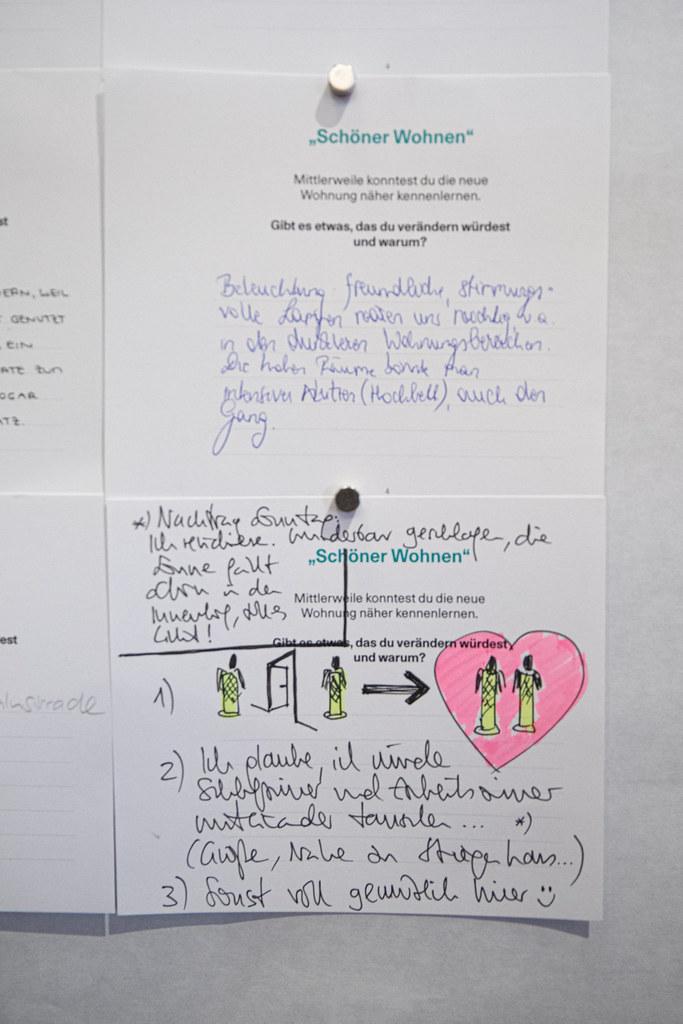 st
ERN, WEIL
GENUTZT
EIN
ATZ ZUM
OGAR
ATZ.
est
„Schöner Wohnen“
Mittlerweile konntest du die neue
Wohnung näher kennenlernen.
Gibt es etwas, das du verändern würdest
und warum?
Beleuchtung freundliche, stimmungs-
volle Lampen wären uns wichtig, v.a.
in den dunkleren Wohnungsbereichen.
Die hohen Räume könnte man
intensiver nutzen (Hochbett), auch den
Gang.
*) Nachtrag Sonntag:
Ich revidiere. Wunderbar geschlafen, die
Sonne fällt
schon in den
Innenhof, alles
Licht!
„Schöner Wohnen“
Mittlerweile konntest du die neue
Wohnung näher kennenlernen.
Gibt es etwas, das du verändern würdest
und warum?
1)
2) Ich glaube, ich würde
Schlafzimmer und Arbeitszimmer
miteinander tauschen... *)
(Größe, Nähe zu Stiegenhaus...)
3) Sonst voll gemütlich hier